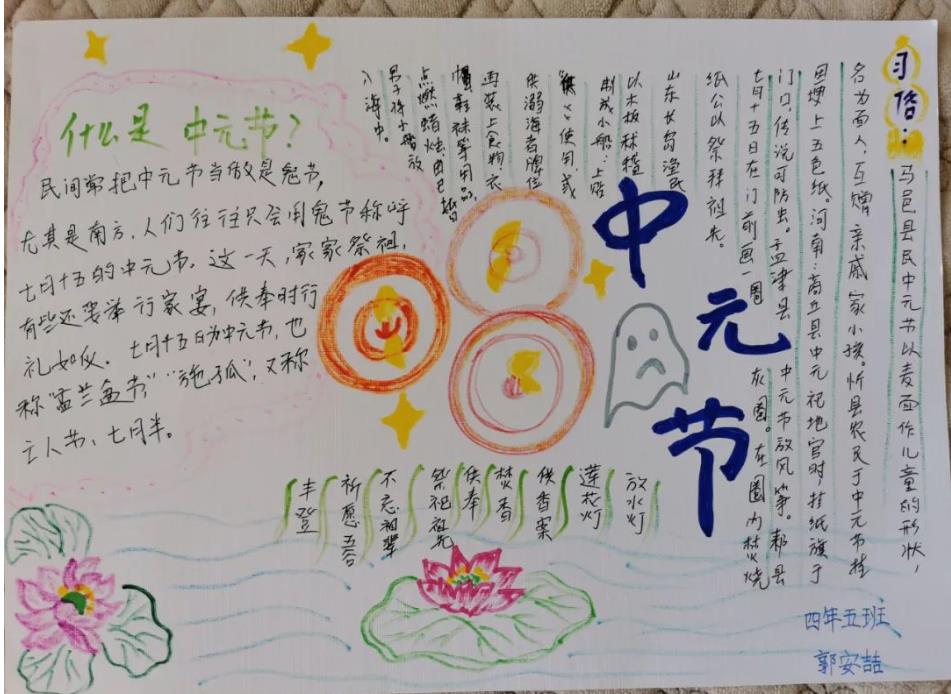 什么是中元节?
民间常把中元节当做是鬼节,
尤其是南方,人们往往只会用鬼节称呼
七月十五的中元节。这一天,家家祭祖,
有些还要举行家宴,供奉时行
礼如仪。七月十五日为中元节,也
称“盂兰盆节”“施孤”,又称
亡人节、七月半。
中
元
节
习俗:
马邑县民中元节以麦面作儿童的形状,
名为面人,互赠亲戚家小孩。忻县农民于中元节挂
田埂上五色纸。河南:商丘县中元祀地官时,挂纸旗于
门口,传说可防虫。孟津县中元节放风筝。郏县
七月十五日在门前画一圈灰圈。在圈内焚烧
纸公以祭拜祖先。
山东长岛渔民
以木板秫秸
制成小船:上贴
使用,或
供溺海者牌位
再装上食物、衣
帽鞋袜等用品,
点燃蜡烛由已
男子将小船放
入海中。
放水灯
莲花灯
供香案
焚香
供奉
祭祀祖先
不忘祖辈
祈愿五谷
丰登
四年五班
郭安喆